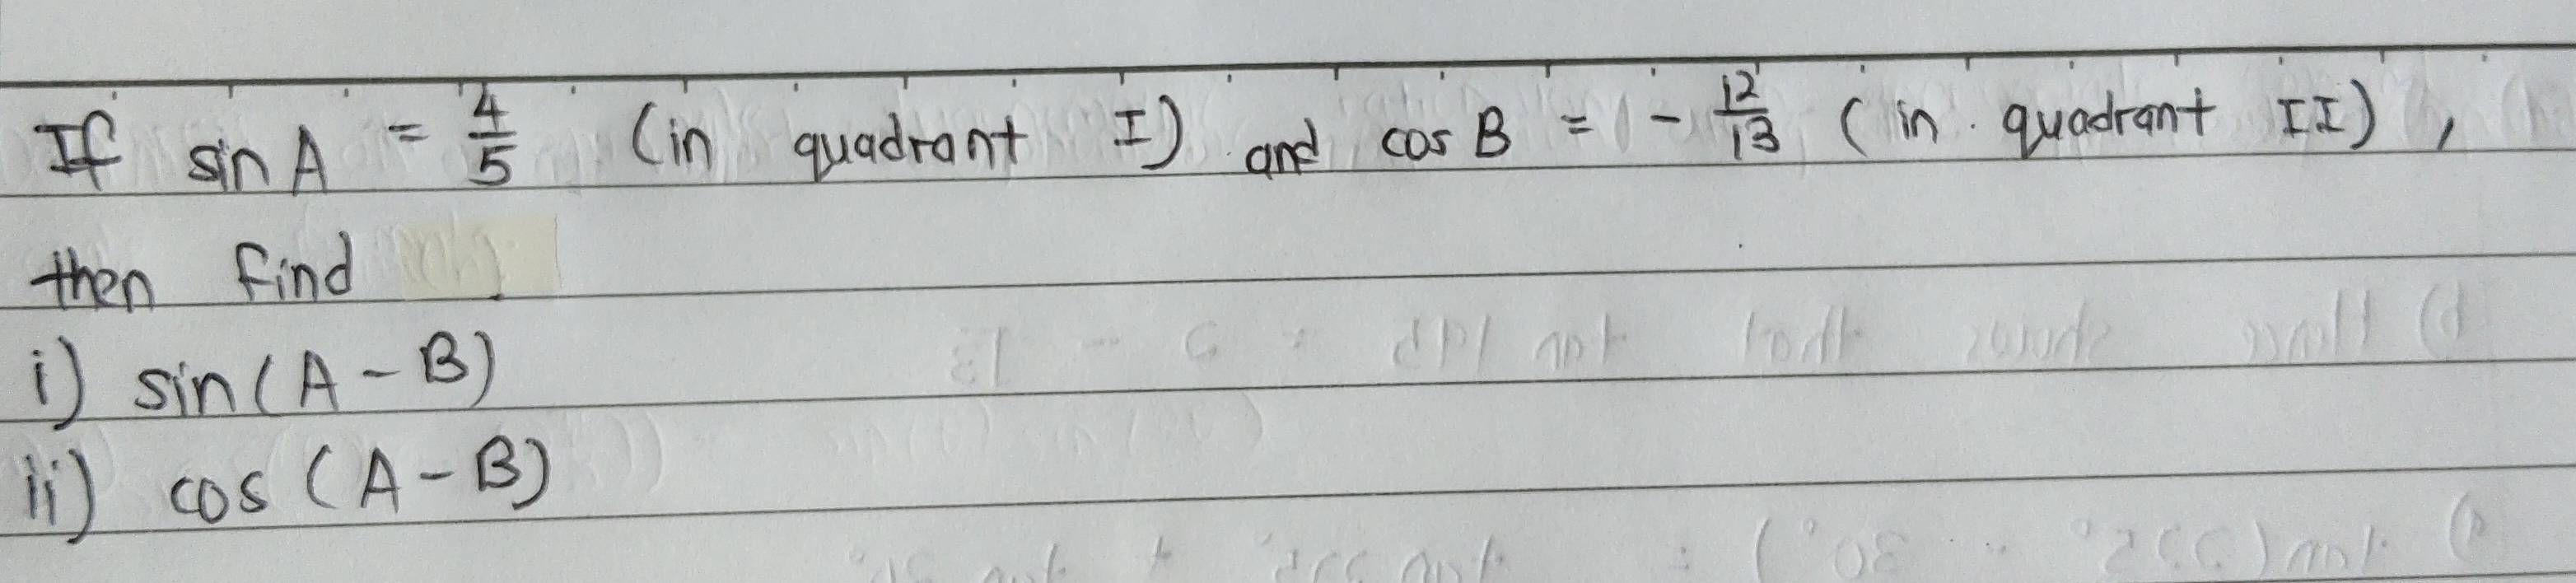 If sin A = 4/5 (in quadrant I) and cos B = - 12/13 (in quadrant II),
then find
i) sin(A - B)
ii) cos (A - B)